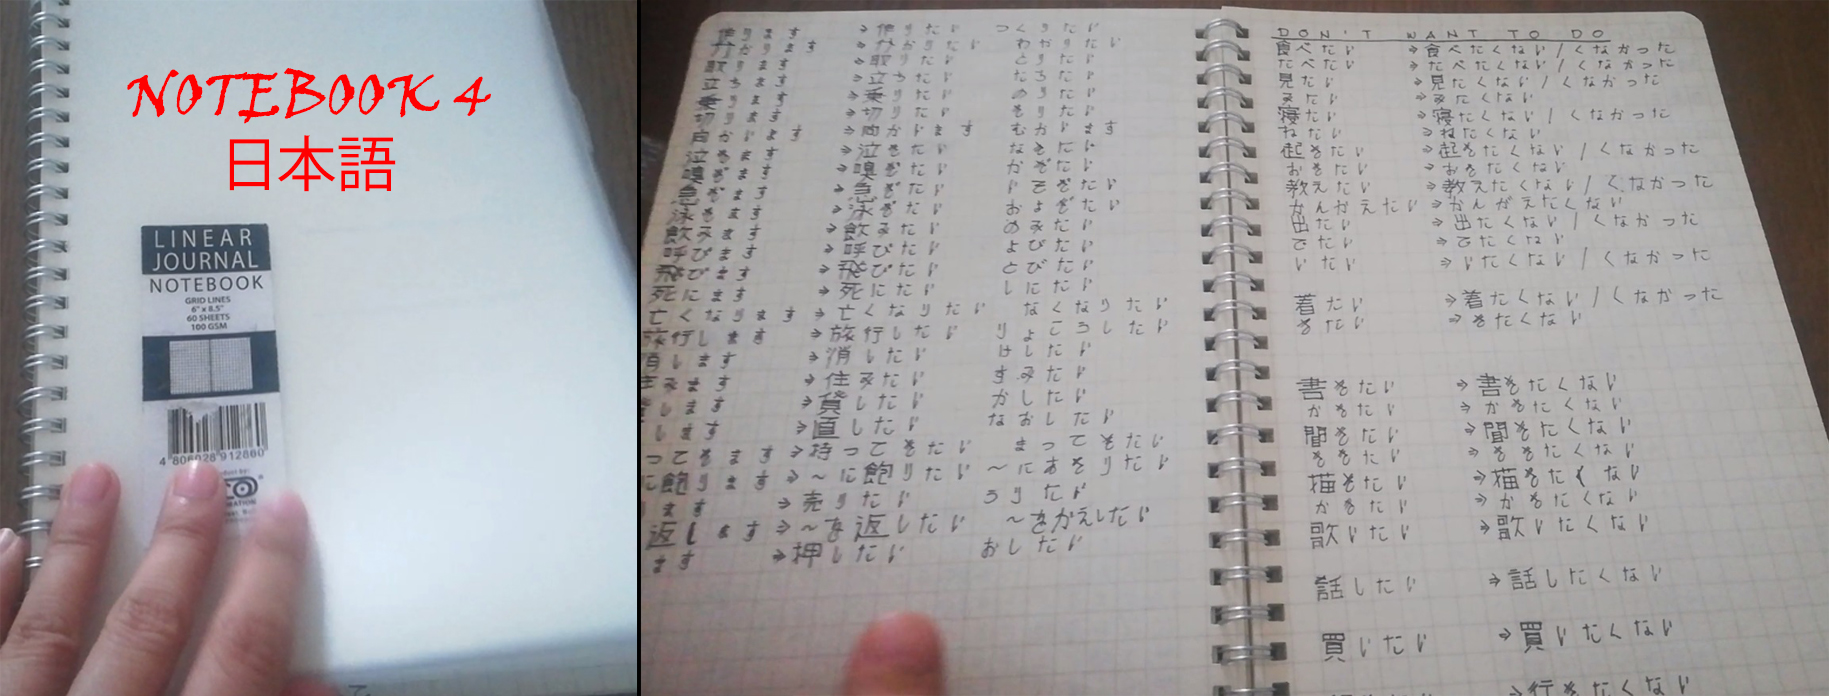 NOTEBOOK 4
日本語
LINEAR
JOURNAL
NOTEBOOK
GRID LINES
6" x 8.5"
60 SHEETS
100 GSM
4 806028 912860
作ります ⇒ 作りたい つくりたい
分かります ⇒ 分かりたい わかりたい
取ります ⇒ 取りたい とりたい
立ちます ⇒ 立ちたい たちたい
乗ります ⇒ 乗りたい のりたい
切ります ⇒ 切りたい きりたい
向かいます ⇒ 向かいます むかいます
泣きます ⇒ 泣きたい なきたい
嗅ぎます ⇒ 嗅ぎたい かぎたい
急ぎます ⇒ 急ぎたい いそぎたい
泳ぎます ⇒ 泳ぎたい およぎたい
飲みます ⇒ 飲みたい のみたい
呼びます ⇒ 呼びたい よびたい
飛びます ⇒ 飛びたい とびたい
死にます ⇒ 死にたい しにたい
亡くなります ⇒ 亡くなりたい なくなりたい
旅行します ⇒ 旅行したい りょこうしたい
消します ⇒ 消したい けしたい
住みます ⇒ 住みたい すみたい
します ⇒ 貸したい かしたい
します ⇒ 直したい なおしたい
ってきます ⇒ 持ってきたい まってきたい
に飽ります ⇒ ～に飽りたい ～にあきりたい
ります ⇒ 売りたい うりたい
返します ⇒ ～を返したい ～をかえしたい
ます ⇒ 押したい おしたい
DON'T WANT TO DO
食べたい ⇒ 食べたくない / くなかった
たべたい ⇒ たべたくない / くなかった
見たい ⇒ 見たくない / くなかった
みたい ⇒ みたくない
寝たい ⇒ 寝たくない / くなかった
ねたい ⇒ ねたくない
起きたい ⇒ 起きたくない / くなかった
おきたい ⇒ おきたくない
教えたい ⇒ 教えたくない / くなかった
かんがえたい ⇒ かんがえたくない
出たい ⇒ 出たくない / くなかった
でたい ⇒ でたくない
いたい ⇒ いたくない / くなかった
着たい ⇒ 着たくない / くなかった
きたい ⇒ きたくない
書きたい ⇒ 書きたくない
かきたい ⇒ かきたくない
聞きたい ⇒ 聞きたくない
ききたい ⇒ ききたくない
描きたい ⇒ 描きたくない
かきたい ⇒ かきたくない
歌いたい ⇒ 歌いたくない
話したい ⇒ 話したくない
買いたい ⇒ 買いたくない
⇒ 行きたくない